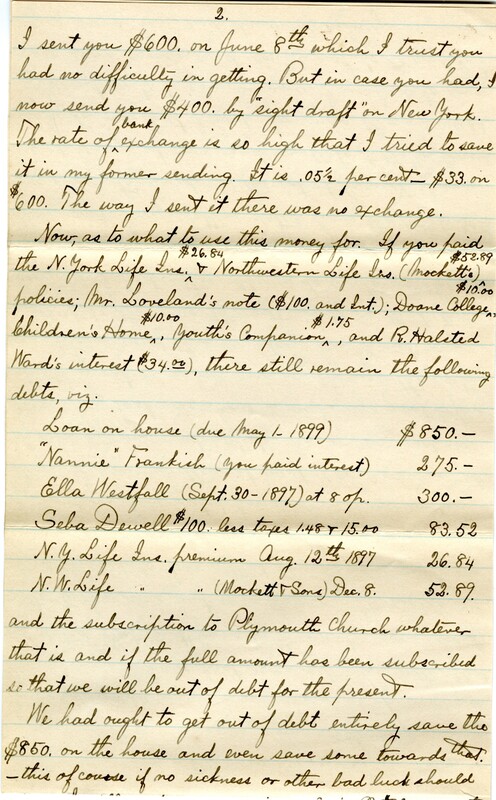 2.
I sent you $600. on June 8th which I trust you
had no difficulty in getting. But in case you had, I
now send you $400. by "sight draft" on New York.
The rate of bank exchange is so high that I tried to save
it in my former sending. It is .05½ per cent – $33. on
$600. The way I sent it there was no exchange.
Now, as to what to use this money for. If you paid
the N. York Life Ins. $26.84 & Northwestern Life Ins. (Mockett's) $52.89
policies; Mr. Loveland's note ($100. and Int.); Doane College, $10.00
Children's Home $10.00, Youth's Companion $1.75, and R. Halsted
Ward's interest ($34.00), there still remain the following
debts, viz.
Loan on house (due May 1- 1899) $850.–
"Nannie" Frankish (you paid interest) 275.–
Ella Westfall (Sept. 30-1897) at 8 op. 300.–
Seba Dewell $100. less taxes 1.48 & 15.00 83.52
N.Y. Life Ins. premium Aug. 12th 1897 26.84
N.W. Life " " (Mockett & Sons) Dec. 8. 52.89.
and the subscription to Plymouth Church whatever
that is and if the full amount has been subscribed
so that we will be out of debt for the present.
We had ought to get out of debt entirely save the
$850. on the house and even save some towards that.
– this of course if no sickness or other bad luck should